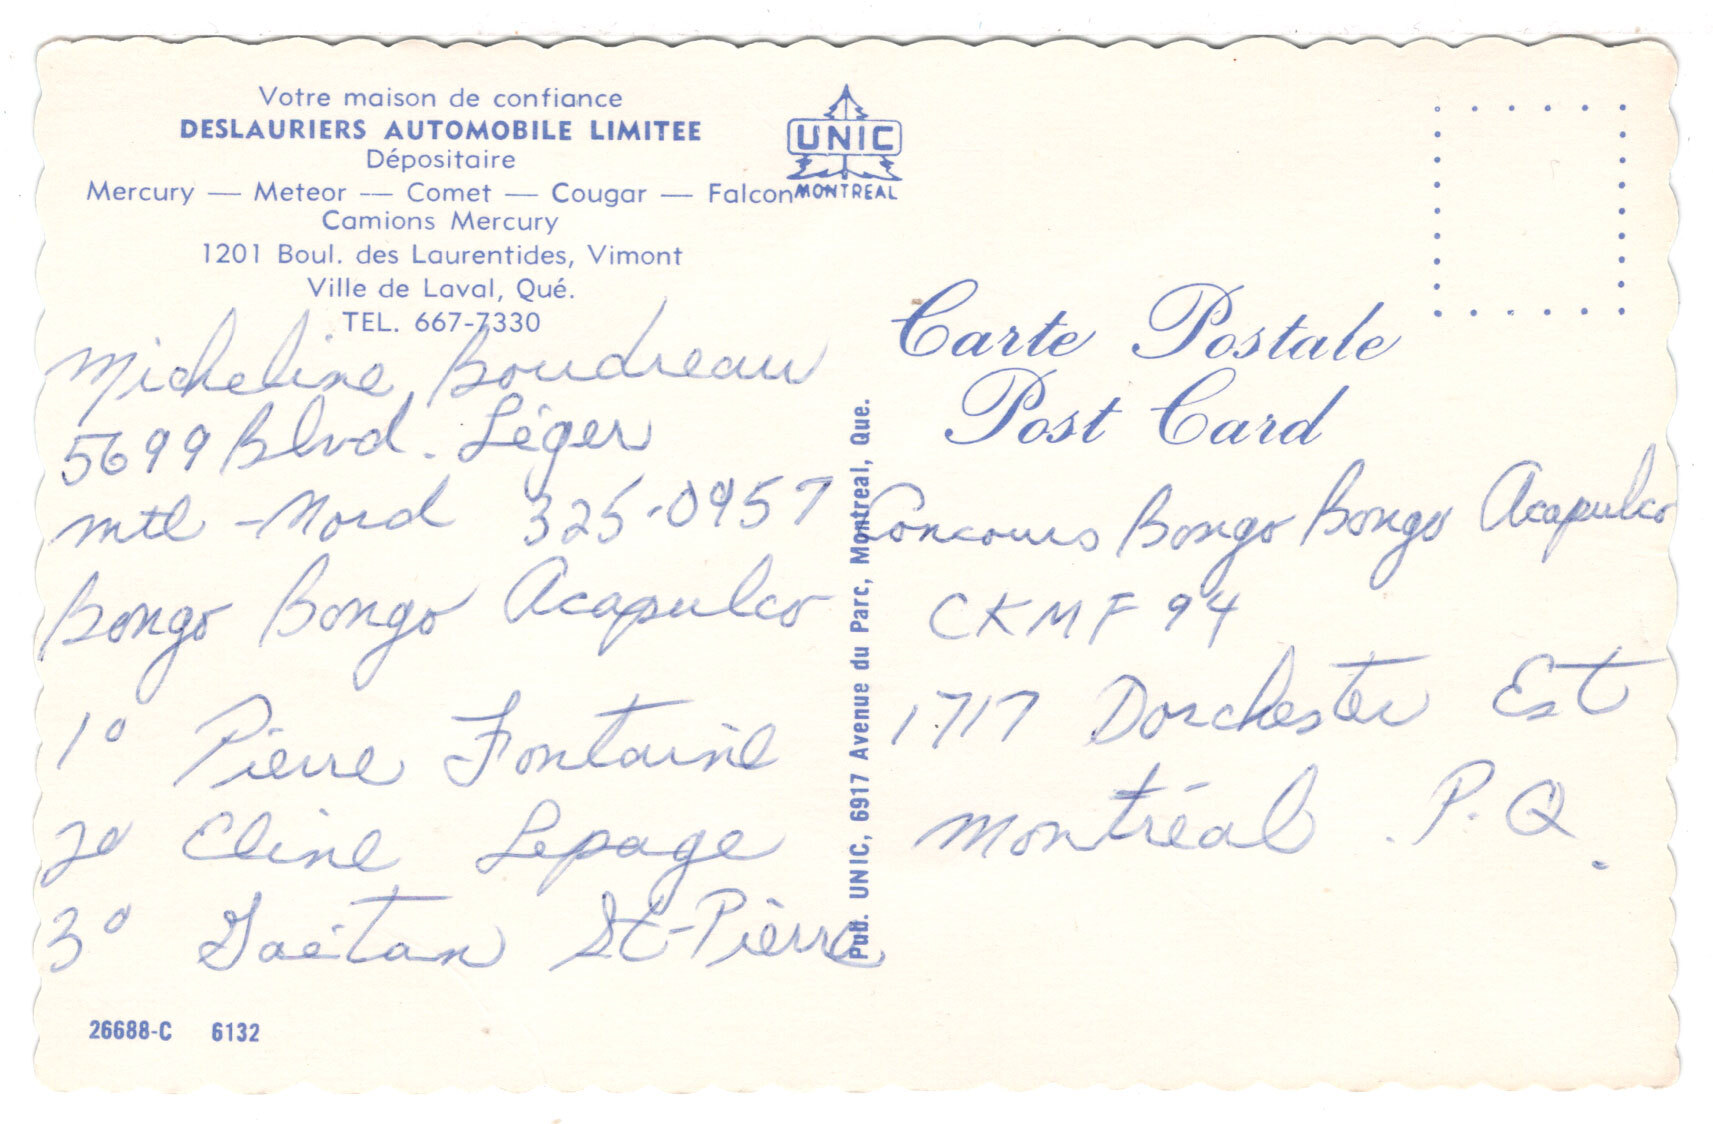 Votre maison de confiance
DESLAURIERS AUTOMOBILE LIMITEE
Dépositaire
Mercury — Meteor — Comet — Cougar — Falcon
Camions Mercury
1201 Boul. des Laurentides, Vimont
Ville de Laval, Qué.
TEL. 667-7330
UNIC
MONTREAL
Micheline Boudreau
5699 Blvd. Léger
Mtl - Nord 325-0957
Bongo Bongo Acapulco
1° Pierre Fontaine
2° Cline Lepage
3° Gaétan St-Pierre
26688-C 6132
Pub. UNIC, 6917 Avenue du Parc, Montreal, Que.
Carte Postale
Post Card
Concours Bongo Bongo Acapulco
CKMF 94
1717 Dorchester Est
Montréal. P.Q.